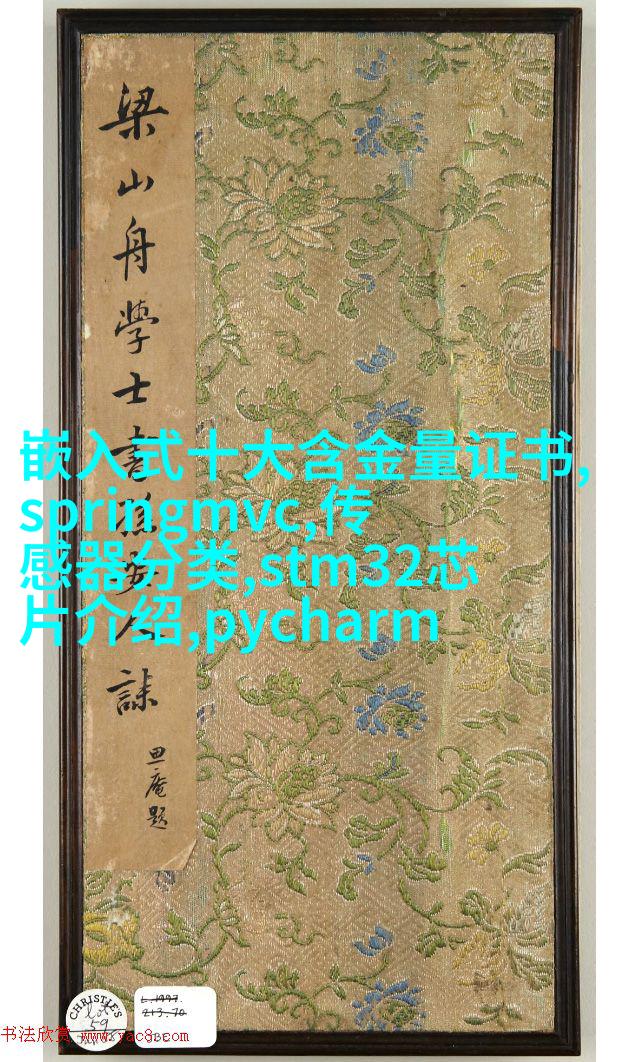 梁山舟學士書安人誄
庵題
嵌入式十大含金量证书,
springmvc,传
感器分类,stm32芯
片介绍,pycharm
CHRISTIE'S
Lot
59
L.1997.
213.70
书法欣赏 www.yac8.com